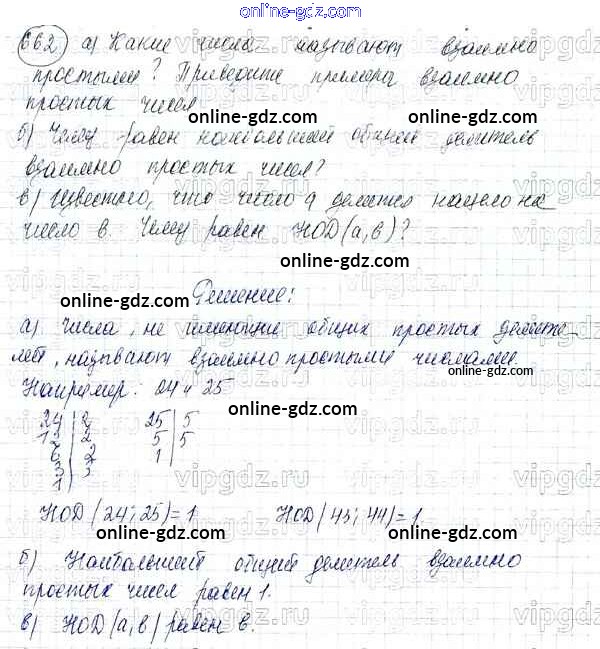 online-gdz.com
662 а) Какие числа называют взаимно
простыми? Приведите примеры взаимно
простых чисел
online-gdz.com
б) Чему равен наибольший общий делитель
взаимно простых чисел?
в) Известно, что число а делится нацело на
число в. Чему равен НОД(а,в)?
online-gdz.com
Решение:
online-gdz.com
а) Числа, не имеющие общих простых делите-
лей, называют взаимно простыми числами.
online-gdz.com
Например: 24 и 25
online-gdz.com
24 | 2 25 | 5
12 | 2 5 | 5
6 | 2 1
3 | 3
1
vipgdz.ru
НОД(24; 25)=1 НОД(43; 44)=1.
online-gdz.com
online-gdz.com
б) Наибольший общий делитель взаимно
простых чисел равен 1.
online-gdz.com
в) НОД(а,в) равен в.
online-gdz.com